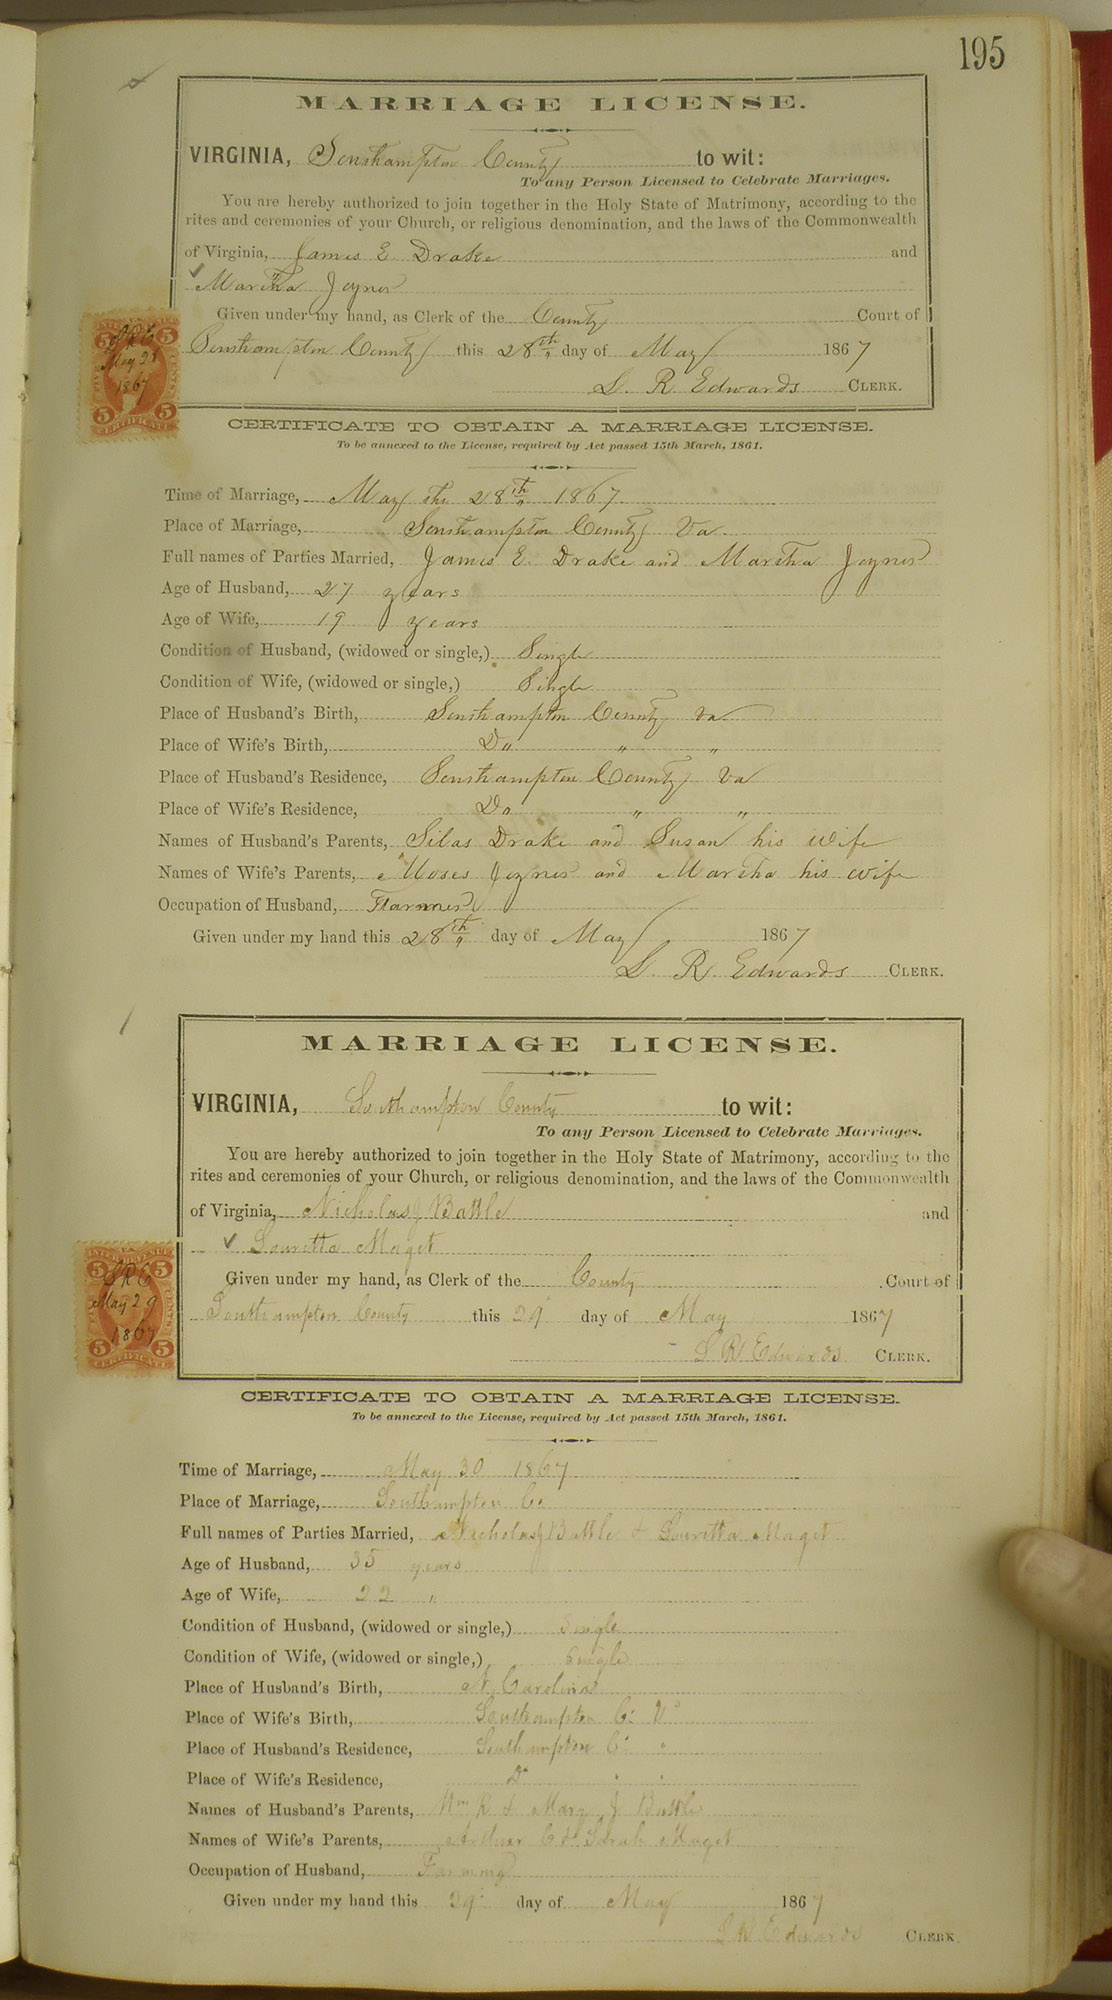 195
MARRIAGE LICENSE.
VIRGINIA, Southampton County to wit:
To any Person Licensed to Celebrate Marriages.
You are hereby authorized to join together in the Holy State of Matrimony, according to the
rites and ceremonies of your Church, or religious denomination, and the laws of the Commonwealth
of Virginia, James E. Drake and
✓ Martha Joyner
Given under my hand, as Clerk of the County Court of
Southampton County this 28th day of May 1867
L. R. Edwards CLERK.
5 5
L R E
May 28
1867
5 5
CERTIFICATE
CERTIFICATE TO OBTAIN A MARRIAGE LICENSE.
To be annexed to the License, required by Act passed 15th March, 1861.
Time of Marriage, May the 28th 1867
Place of Marriage, Southampton County Va
Full names of Parties Married, James E. Drake and Martha Joyner
Age of Husband, 27 years
Age of Wife, 19 years
Condition of Husband, (widowed or single,) Single
Condition of Wife, (widowed or single,) Single
Place of Husband's Birth, Southampton County Va
Place of Wife's Birth, Do " "
Place of Husband's Residence, Southampton County Va
Place of Wife's Residence, Do " "
Names of Husband's Parents, Silas Drake and Susan his wife
Names of Wife's Parents, Moses Joyner and Martha his wife
Occupation of Husband, Farmer
Given under my hand this 28th day of May 1867
L. R. Edwards CLERK.
MARRIAGE LICENSE.
VIRGINIA, Southampton County to wit:
To any Person Licensed to Celebrate Marriages.
You are hereby authorized to join together in the Holy State of Matrimony, according to the
rites and ceremonies of your Church, or religious denomination, and the laws of the Commonwealth
of Virginia, Nicholas J Battle and
✓ Louretta Maget
Given under my hand, as Clerk of the County Court of
Southampton County this 29 day of May 1867
L R Edwards CLERK.
5 5
L R E
May 29
1867
5 5
CERTIFICATE
CERTIFICATE TO OBTAIN A MARRIAGE LICENSE.
To be annexed to the License, required by Act passed 15th March, 1861.
Time of Marriage, May 30 1867
Place of Marriage, Southampton Co
Full names of Parties Married, Nicholas J Battle & Louretta Maget
Age of Husband, 35 years
Age of Wife, 22 "
Condition of Husband, (widowed or single,) Single
Condition of Wife, (widowed or single,) Single
Place of Husband's Birth, N. Carolina
Place of Wife's Birth, Southampton Co Va
Place of Husband's Residence, Southampton Co "
Place of Wife's Residence, Do " "
Names of Husband's Parents, Wm R & Mary J Battle
Names of Wife's Parents, Arthur C & Sarah Maget
Occupation of Husband, Farming
Given under my hand this 29 day of May 1867
L R Edwards CLERK.